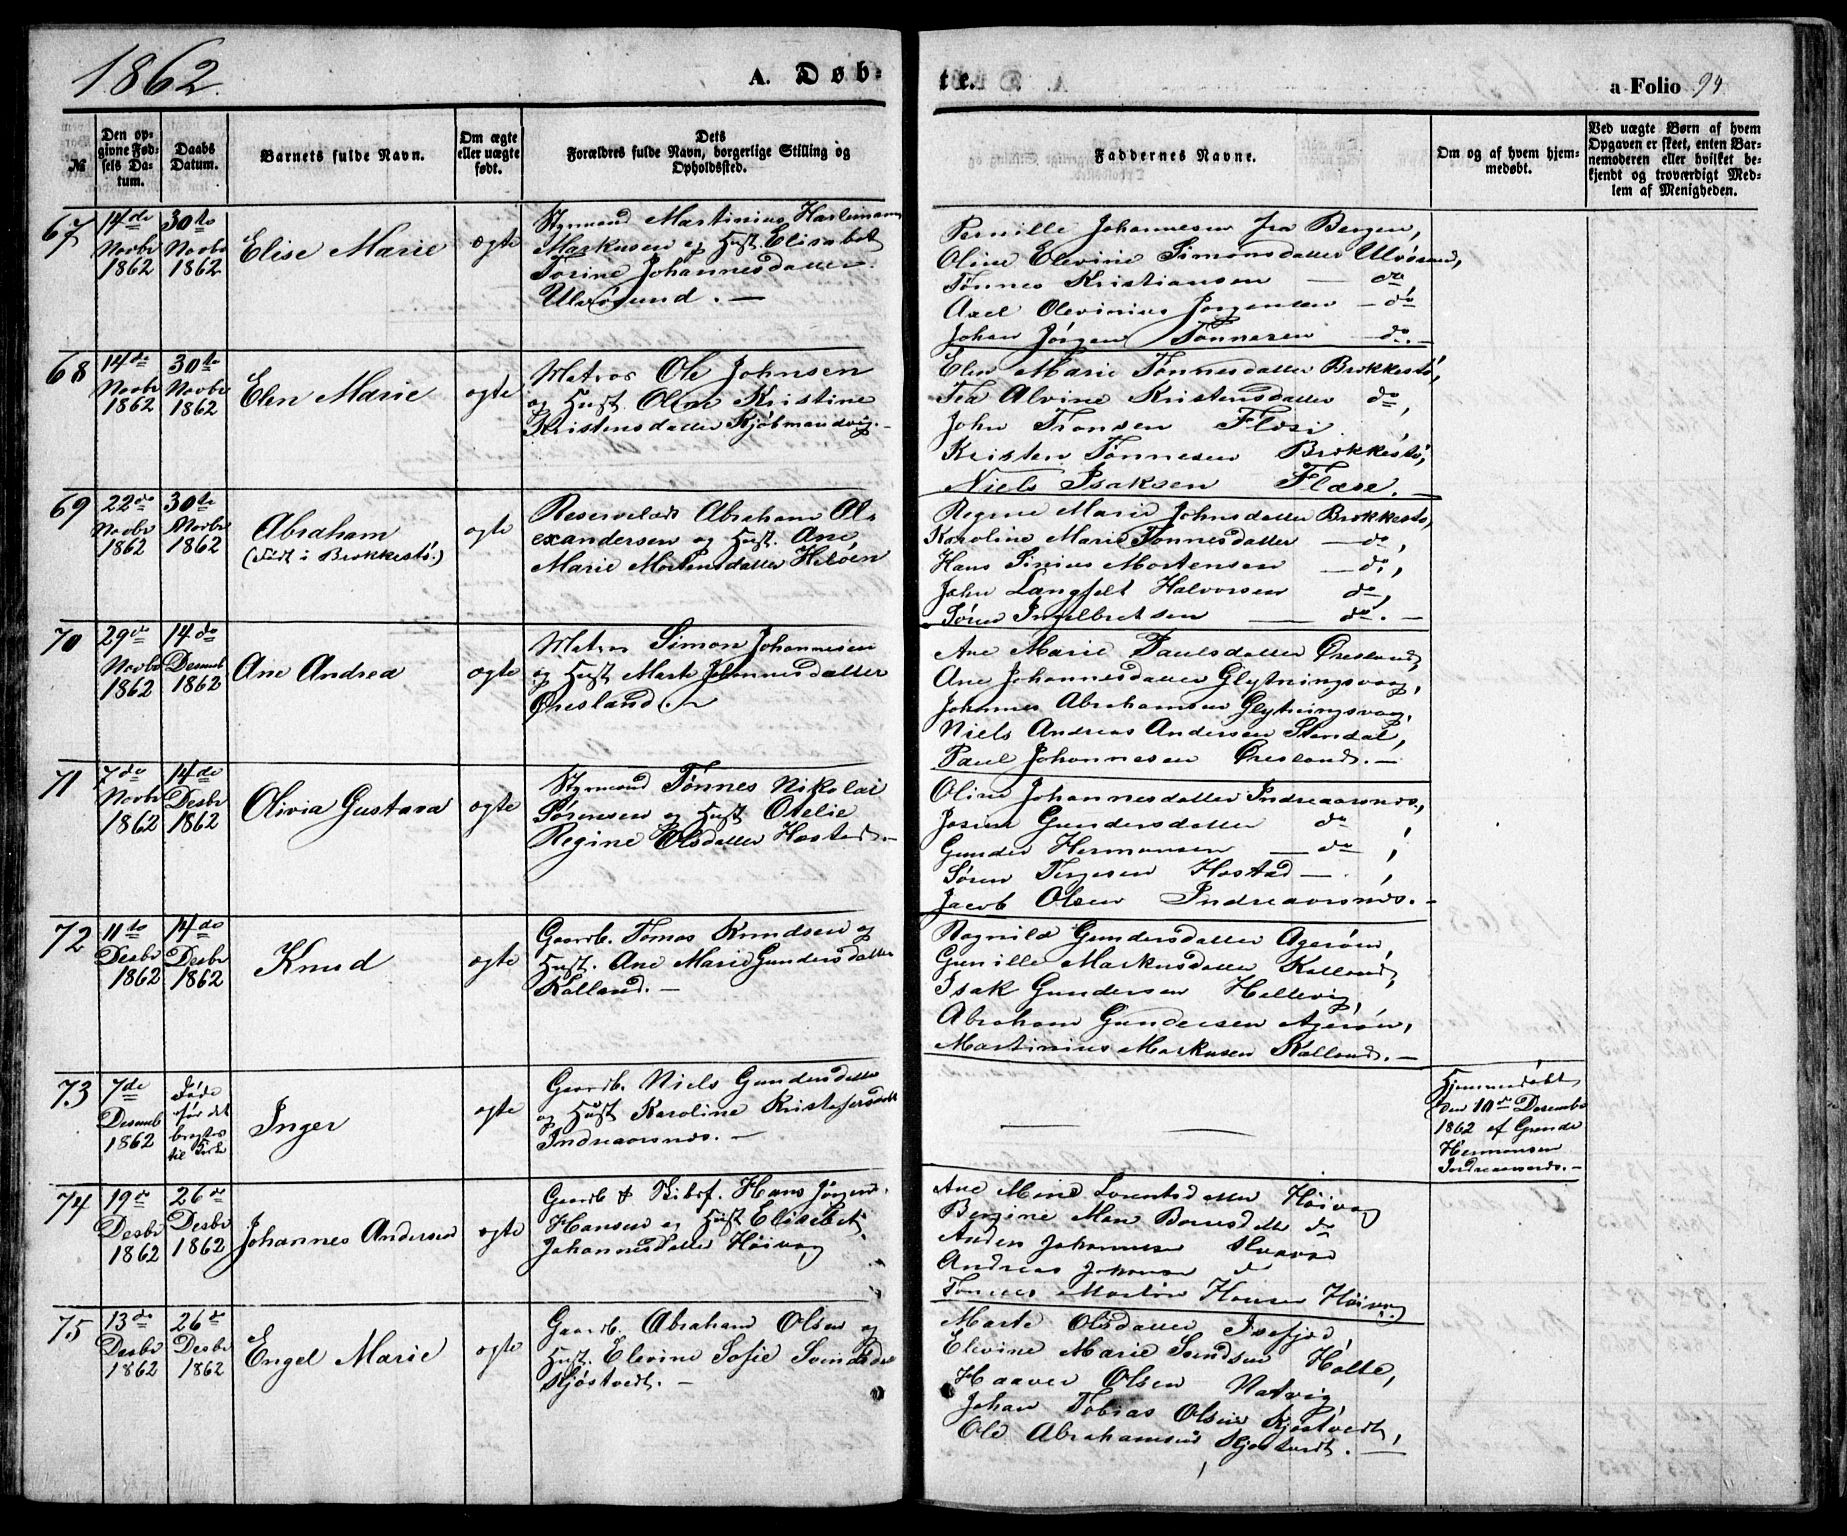 1862.
A. Døb-
te.
a Folio 94
№
Den op-
givne Fød-
sels Da-
tum.
Daabs
Datum.
Barnets fulde Navn.
Om ægte
eller uægte
født.
Dets
Forældres fulde Navn, borgerlige Stilling og
Opholdssted.
Faddernes Navne.
Om og af hvem hjem-
medøbt.
Ved uægte Børn af hvem
Opgaven er skeet, enten Bar-
nemoderen eller hvilket be-
kjendt og troværdigt Med-
lem af Menigheden.
67
14de
Novbr
1862
30te
Novbr
1862
Elise Marie
ægte
Styrmand Martinius Harleman
Markusen og Hust. Elisabet
Torine Johannesdatter
Ulvøsund. —
Pernille Johannesen fra Bergen,
Oline Elevine Simonsdatter Ulvøsund,
Tønnes Kristiansen — do,
Axel Olevinius Jørgensen — do
Johan Jørgen Tønnesen — do. —
68
14de
Novbr
1862
30te
Novbr
1862
Elen Marie
ægte
Matros Ole Johnsen
og Hust. Oline Kristine
Kristensdatter Kjøbmandsvig. —
Elen Marie Tønnesdatter Brækkestø,
Tea Alvine Kristensdatter do,
John Tronsen
Kristen Tønnesen Brækkestø,
Niels Isaksen Flære. —
69
22de
Novbr
1862
30te
Novbr
1862
Abraham
(født i Brækkestø.)
ægte
Reservelods Abraham Al-
exandersen og Hust. Ane
Marie Mortensdatter Heløen
Regine Marie Johnsdatter Brækkestø,
Karoline Marie Tønnesdatter — do,
Hans Sinius Mortensen — do,
John Langfelt Halvorsen do,
Søren Ingelbretsen — do. —
70
29de
Novbr
1862
14de
Desemb
1862
Ane Andrea
ægte
Matros Simon Johannesen
og Hust Marte Johannesdatter
Øresland. —
Ane Marie Paulsdatter Øresland,
Ane Johannesdatter Glytningsvaag,
Johannes Abrahamsen Glytningsvag,
Niels Andreas Andersen Stendal,
Paul Johannesen Øresland. —
71
7de
Novbr
1862
14de
Desbr
1862
Olivia Gustava
ægte
Styrmand Tønnes Nikolai
Sørensen og Hust Otelie
Regine Olsdatter Hæstad. —
Oline Johannesdatter Indreaarsnæs,
Josine Gundersdatter do,
Gunder Hermansen — do,
Søren Terjesen Hæstad —
Jacob Olsen Indreaarsnæs. —
72
11te
Desbr
1862
14de
Desbr
1862
Knud
ægte
Gaardb. Tomas Knudsen og
Hust. Ane Marie Gundersdatter
Kalland. —
Ragnild Gundersdatter Agerøen,
Gunille Markusdatter Kalland,
Isak Gundersen Hellevig,
Abraham Gundersen Agerøen,
Martinius Markusen Kalland. —
73
7de
Desemb
1862
Døde
før det
bragtes
til Kirke
Inger
ægte
Gaardb. Niels Gundersen
og Hust Karoline Kristofersdatter
Indreaarsnæs. —
Hjemmedøbt
den 10de Desembr
1862 af Gunder
Hermansen
Indreaarsnæs. —
74
19de
Desbr
1862
26de
Desbr
1862
Johannes Andersen
ægte
Gaardb & Skibsf. Hans Jørgen
Hansen og Hust Elisabet
Johannesdatter Høivaag
Ane Marie Lorentsdatter Høivag
Bergine Marie do
Johannesen
Andreas Johansen do
Tønnes Martin Hansen Høivag.
75
13de
Desbr
1862
26de
Desbr
1862
Engel Marie
ægte
Gaardb. Abraham Olsen og
Hust. Elevine Sofie Svendsdat
Skjøstvedt. —
Marte Olsdatter Isefjær,
Elevine Marie Svendsen Holte,
Haaver Olsen Natvig,
Johan Tobias Olsen Skjøstvedt,
Ole Abrahamsen Skjøstvedt. —